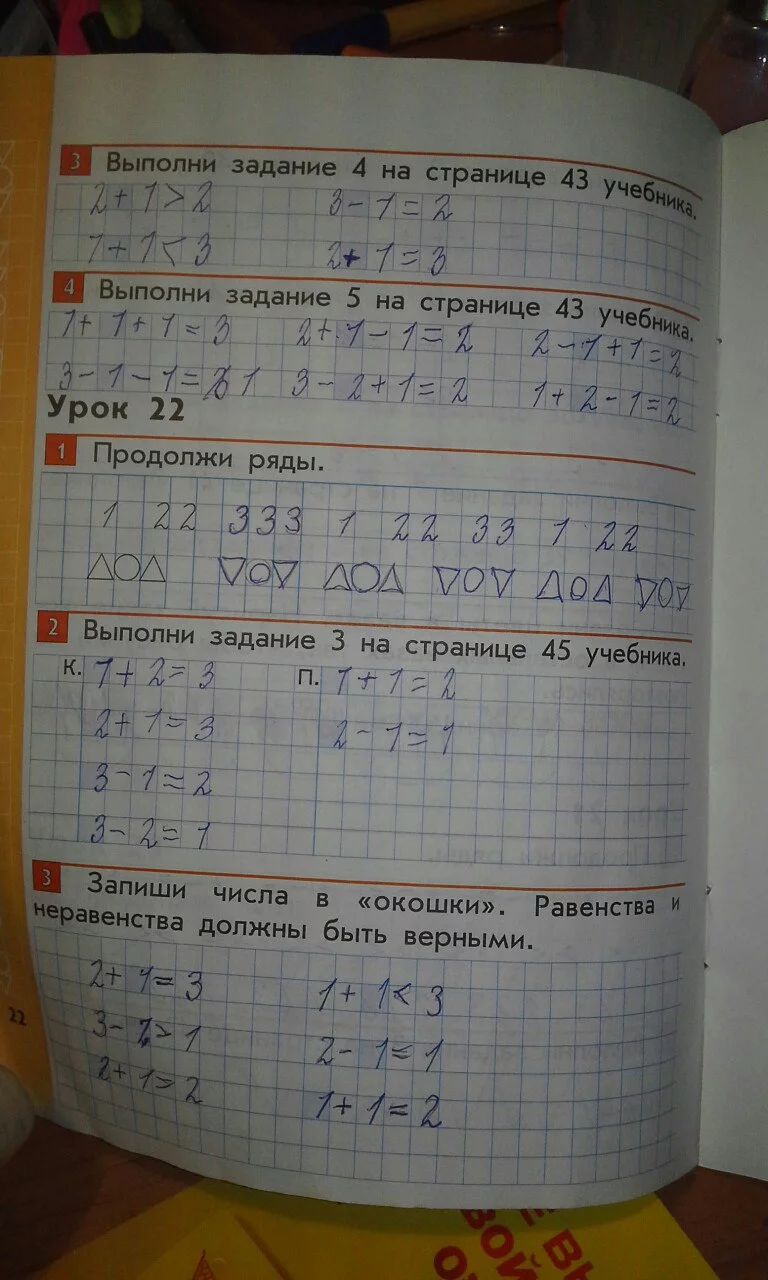 3 Выполни задание 4 на странице 43 учебника.
2 + 1 > 2 3 - 1 = 2
1 + 1 < 3 2 + 1 = 3
4 Выполни задание 5 на странице 43 учебника.
1 + 1 + 1 = 3 2 + 1 - 1 = 2 2 - 1 + 1 = 2
3 - 1 - 1 = 1 3 - 2 + 1 = 2 1 + 2 - 1 = 2
Урок 22
1 Продолжи ряды.
1 22 333 1 22 33 1 22
2 Выполни задание 3 на странице 45 учебника.
К. 1 + 2 = 3 П. 1 + 1 = 2
2 + 1 = 3 2 - 1 = 1
3 - 1 = 2
3 - 2 = 1
3 Запиши числа в «окошки». Равенства и
неравенства должны быть верными.
2 + 1 = 3 1 + 1 < 3
3 - 1 > 1 2 - 1 = 1
2 + 1 > 2 1 + 1 = 2
22